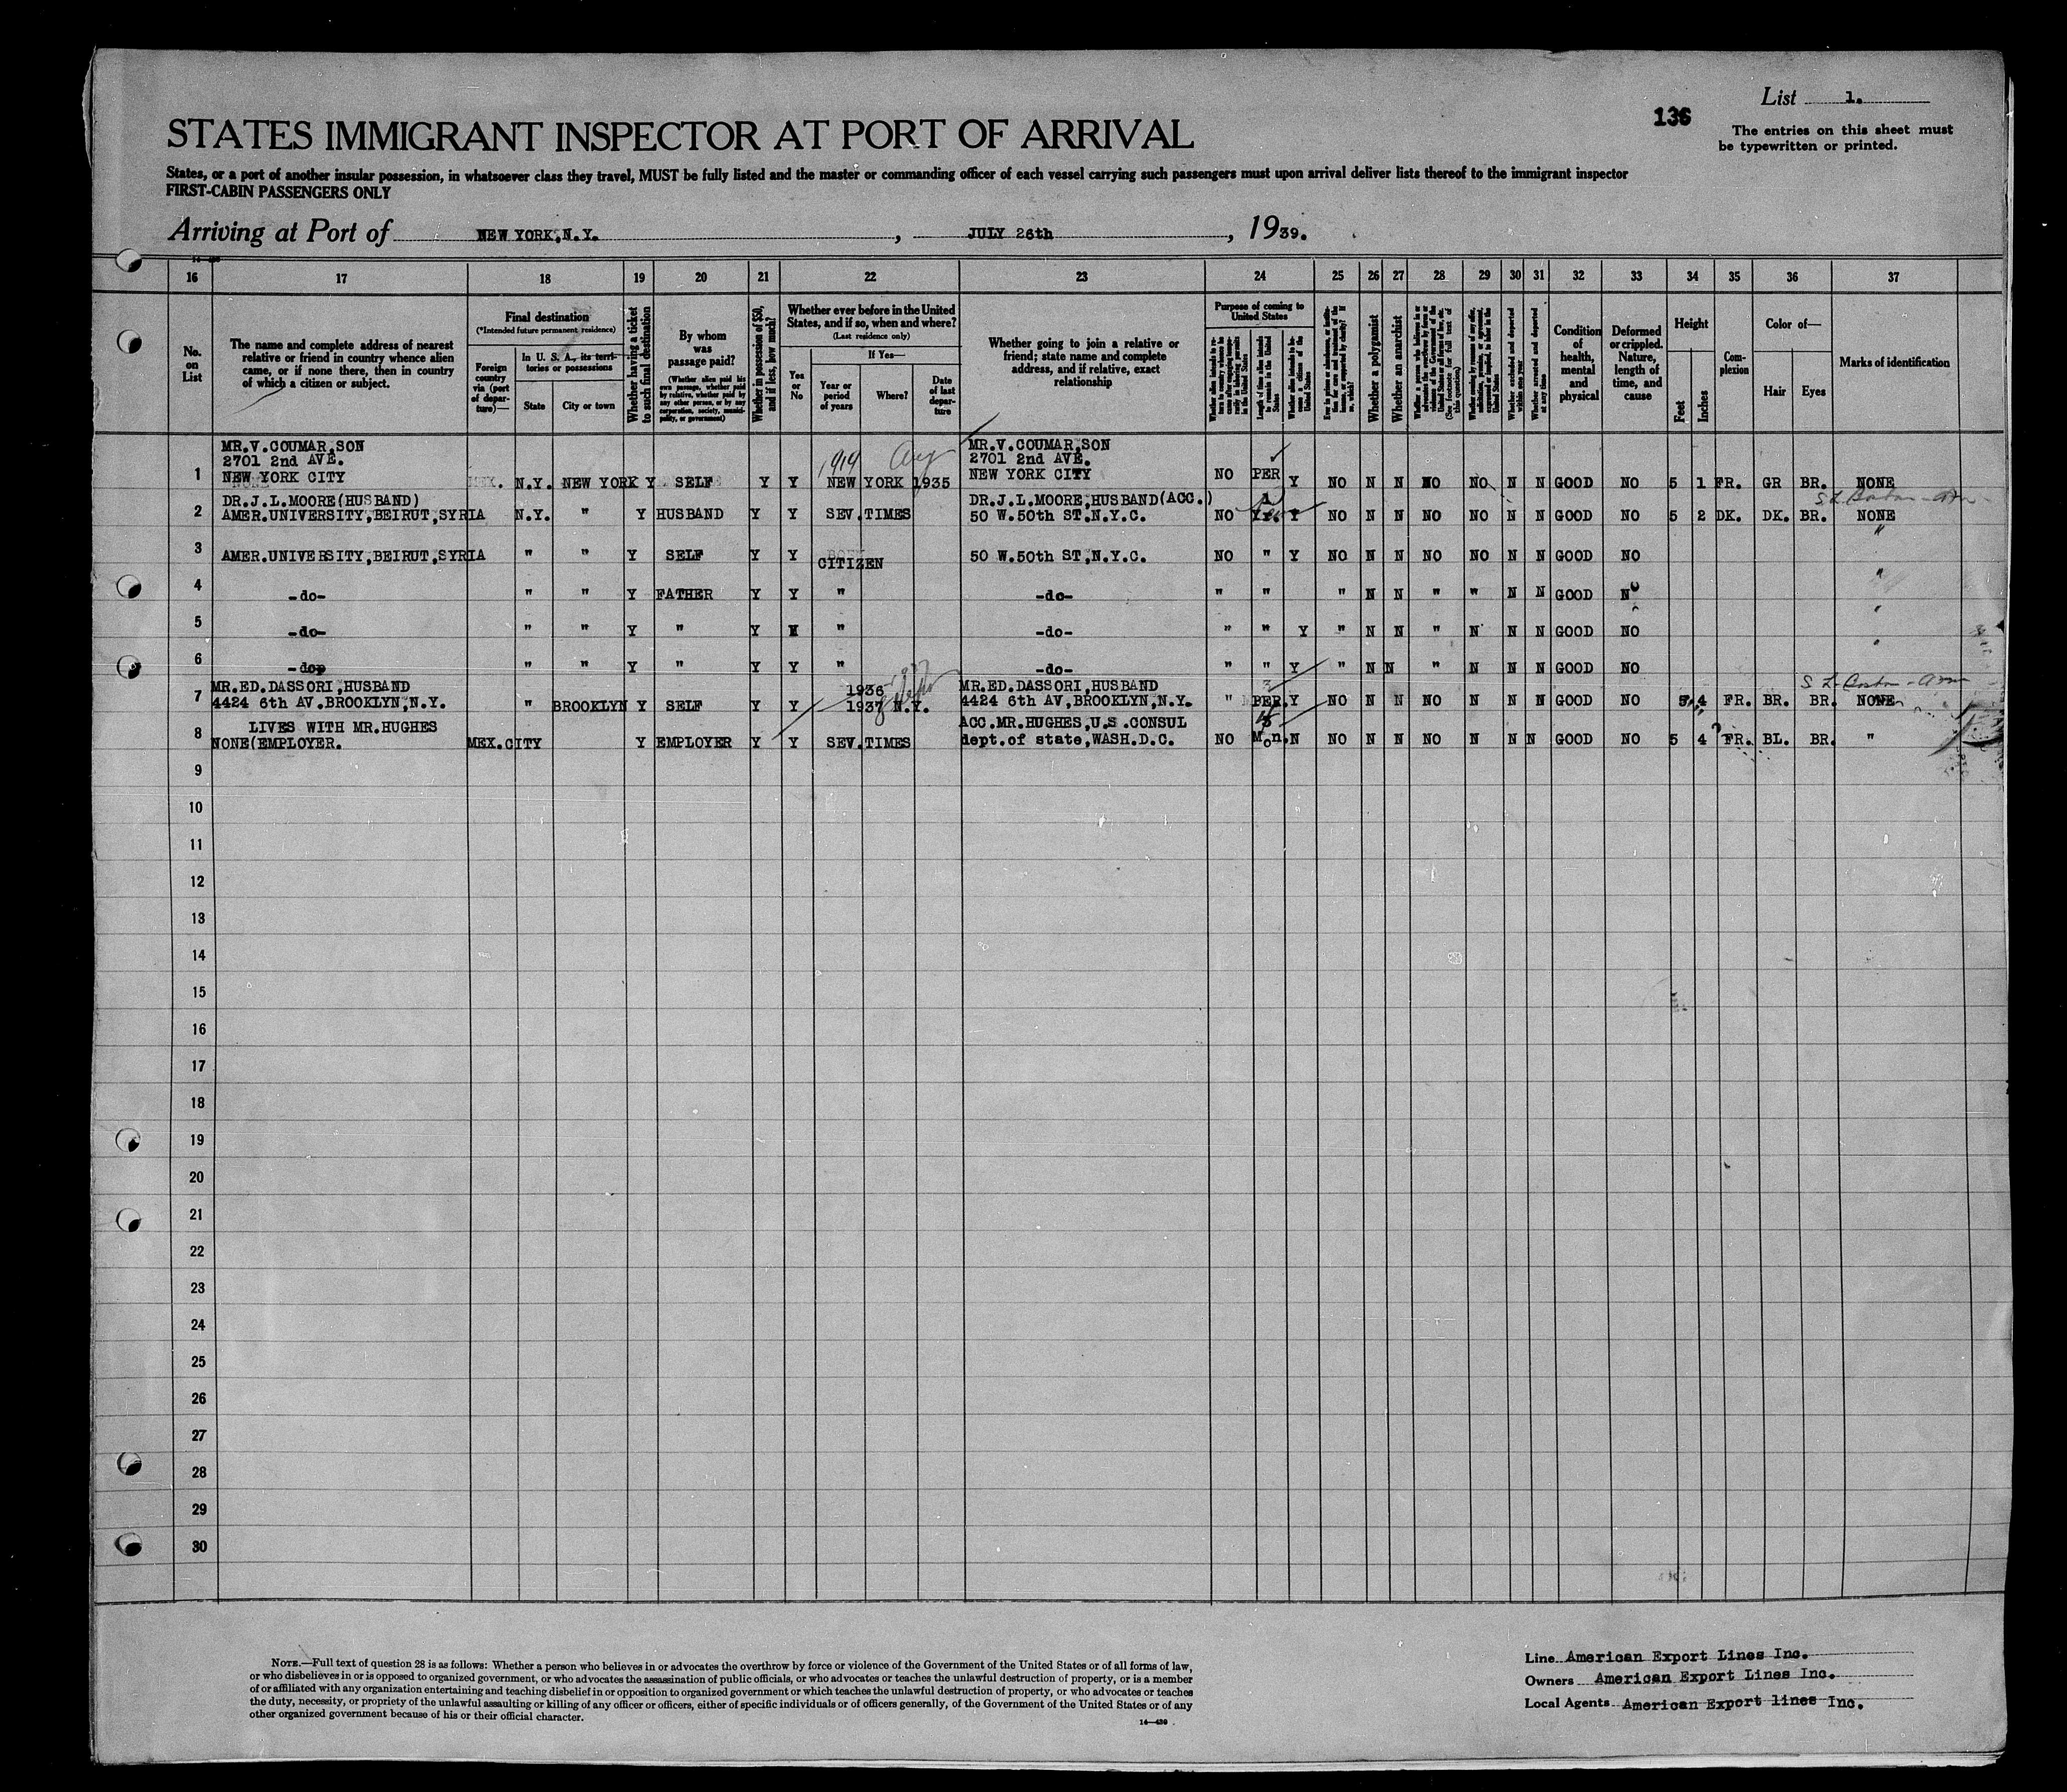 List 1.
136
The entries on this sheet must
be typewritten or printed.
STATES IMMIGRANT INSPECTOR AT PORT OF ARRIVAL
States, or a port of another insular possession, in whatsoever class they travel, MUST be fully listed and the master or commanding officer of each vessel carrying such passengers must upon arrival deliver lists thereof to the immigrant inspector
FIRST-CABIN PASSENGERS ONLY
Arriving at Port of NEW YORK,N.Y. , JULY 26th , 1939.
16 17 18 19 20 21 22 23 24 25 26 27 28 29 30 31 32 33 34 35 36 37
No. on List
The name and complete address of nearest
relative or friend in country whence alien
came, or if none there, then in country
of which a citizen or subject.
Final destination
(*Intended future permanent residence)
Foreign country via (port of departure)—
In U. S. A., its territories or possessions
State
City or town
Whether having a ticket to such final destination
By whom was passage paid?
(Whether alien paid his own passage, whether paid by relative, whether paid by any other person, or by any corporation, society, municipality, or government)
Whether in possession of $50, and if less, how much?
Whether ever before in the United States, and if so, when and where?
(Last residence only)
Yes or No
If Yes—
Year or period of years
Where?
Date of last departure
Whether going to join a relative or
friend; state name and complete
address, and if relative, exact
relationship
Purpose of coming to United States
Length of time alien intends to remain in the United States
Whether alien intends to become a citizen of the United States
Whether a polygamist
Whether an anarchist
Whether excluded and deported within one year
Whether arrested and deported at any time
Condition of health, mental and physical
Deformed or crippled. Nature, length of time, and cause
Height
Feet
Inches
Complexion
Color of—
Hair
Eyes
Marks of identification
MR.V.COUMAR,SON MR.V.COUMAR,SON
2701 2nd AVE. 1914 Aug 2701 2nd AVE.
1 NEW YORK CITY N.Y. NEW YORK Y SELF Y Y NEW YORK 1935 NEW YORK CITY NO PER Y NO N N NO NO N N GOOD NO 5 1 FR. GR BR. NONE
DR.J.L.MOORE(HUSBAND) DR.J.L.MOORE,HUSBAND(ACC.) 1
2 AMER.UNIVERSITY,BEIRUT,SYRIA N.Y. " Y HUSBAND Y Y SEV.TIMES 50 W.50th ST.N.Y.C. NO Y NO N N NO NO N N GOOD NO 5 2 DK. DK. BR. NONE
3 AMER.UNIVERSITY,BEIRUT,SYRIA " " Y SELF Y Y CITIZEN 50 W.50th ST.N.Y.C. NO " Y NO N N NO NO N N GOOD NO "
4 -do- " " Y FATHER Y Y " -do- " " " N N " " N N GOOD NO "
5 -do- " " Y " Y " -do- " " Y " N N " N N N GOOD NO "
6 -do- " " Y " Y Y " -do- " " Y " N N " N N N GOOD NO "
MR.ED.DASSORI,HUSBAND 1936 MR.ED.DASSORI,HUSBAND
7 4424 6th AV.BROOKLYN,N.Y. " BROOKLYN Y SELF Y Y 1937 N.Y. 4424 6th AV,BROOKLYN,N.Y. " PER.Y NO N N NO N N N GOOD NO 5 4 FR. BR. BR. NONE
LIVES WITH MR.HUGHES ACC.MR.HUGHES,U.S.CONSUL
8 NONE(EMPLOYER. MEX.CITY Y EMPLOYER Y Y SEV.TIMES dept.of state,WASH.D.C. NO Mon.N NO N N NO N N N GOOD NO 5 4 FR. BL. BR. "
9
10
11
12
13
14
15
16
17
18
19
20
21
22
23
24
25
26
27
28
29
30
NOTE.—Full text of question 28 is as follows: Whether a person who believes in or advocates the overthrow by force or violence of the Government of the United States or of all forms of law,
or who disbelieves in or is opposed to organized government, or who advocates the assassination of public officials, or who advocates or teaches the unlawful destruction of property, or is a member
of or affiliated with any organization entertaining and teaching disbelief in or opposition to organized government or which teaches the unlawful destruction of property, or who advocates or teaches
the duty, necessity, or propriety of the unlawful assaulting or killing of any officer or officers, either of specific individuals or of officers generally, of the Government of the United States or of any
other organized government because of his or their official character.
14—430
Line American Export Lines Inc.
Owners American Export Lines Inc.
Local Agents American Export lines Inc.